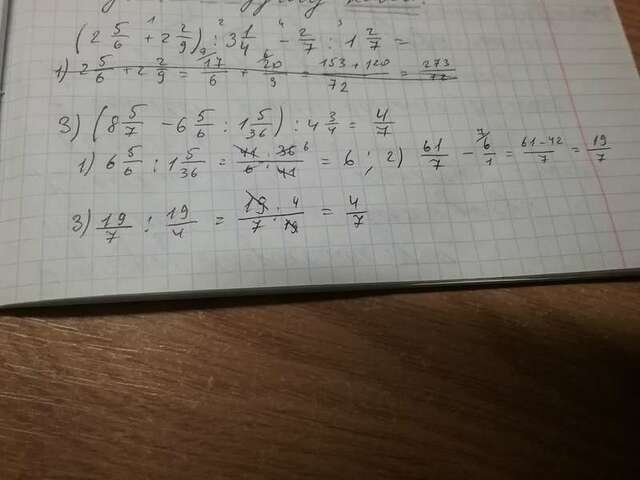 (2 5/6 + 2 2/9) : 3 1/4 - 2/7 : 1 2/7 =
1) 2 5/6 + 2 2/9 = 17/6 + 20/9 = 153 + 120/72 = 273/72
3) (8 5/7 - 6 5/6 : 1 5/36) : 4 3/4 = 4/7
1) 6 5/6 : 1 5/36 = 41 . 36 6/6 . 41 = 6 ; 2) 61/7 - 7 6/1 = 61 - 42/7 = 19/7
3) 19/7 : 19/4 = 19 . 4/7 . 19 = 4/7